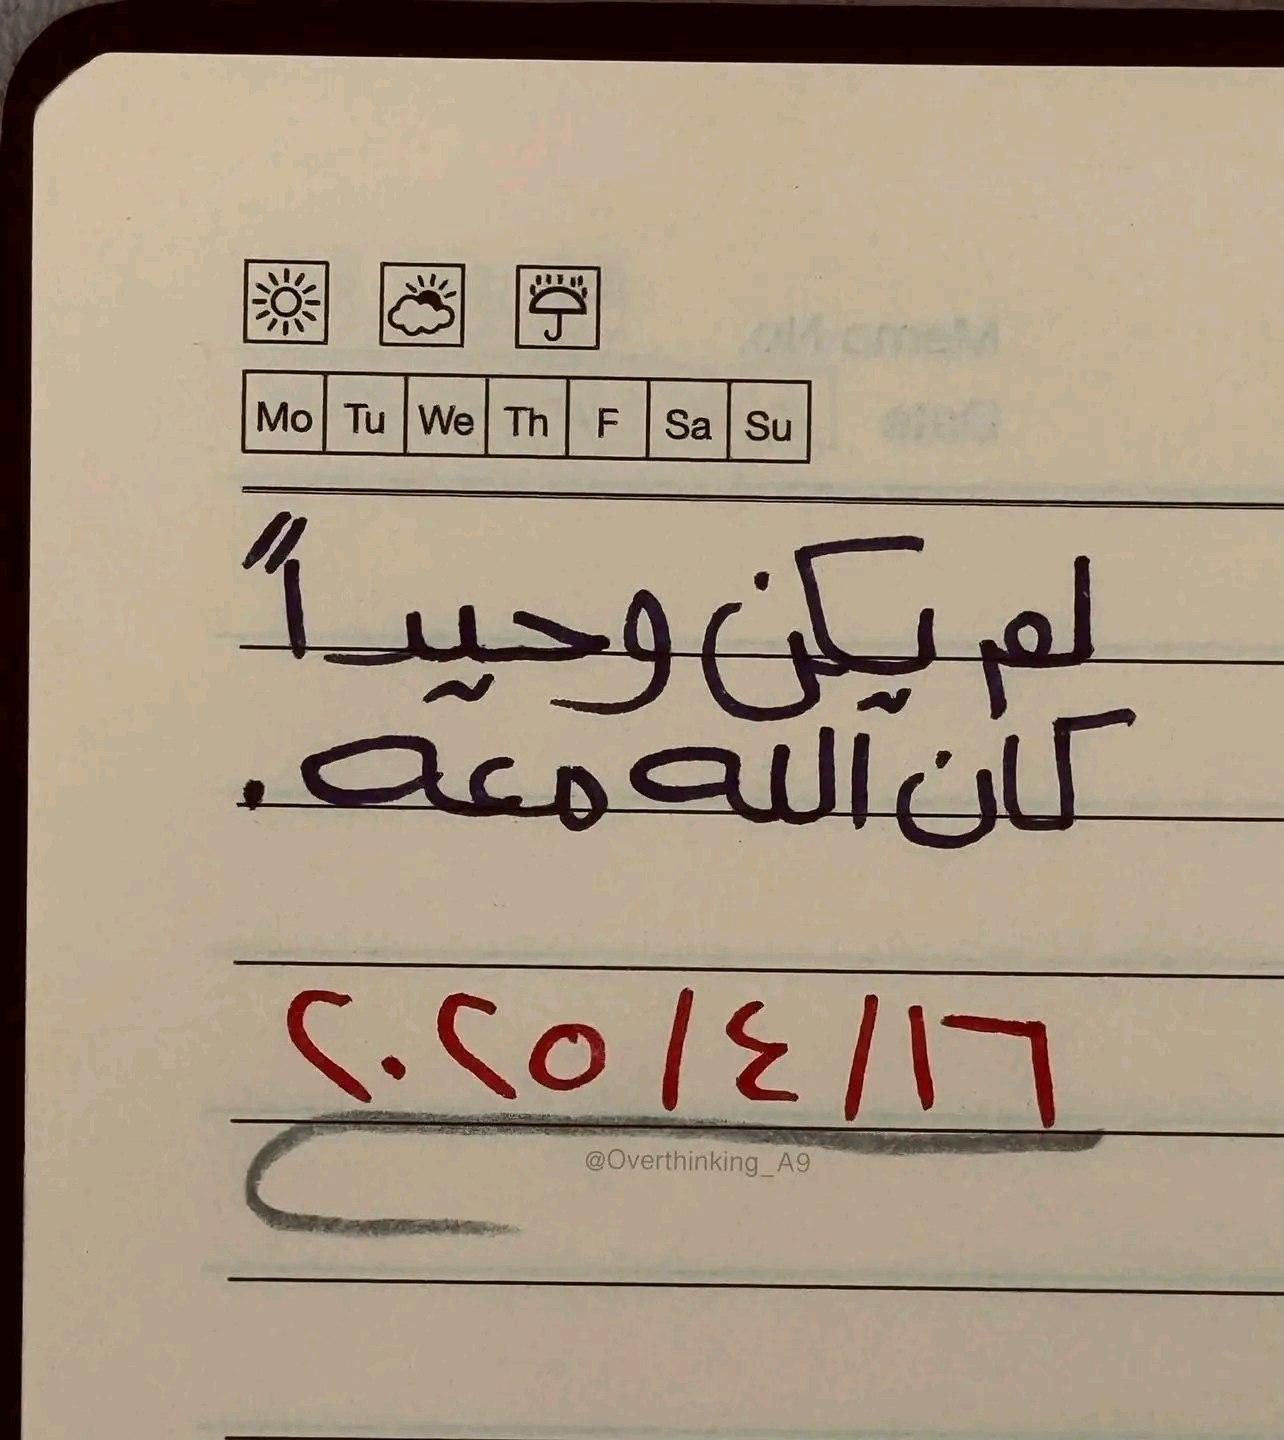 Mo Tu We Th F Sa Su
لم يكن وحيداً
كان الله معه.
٢٠٢٥/٤/١٦
@Overthinking_A9